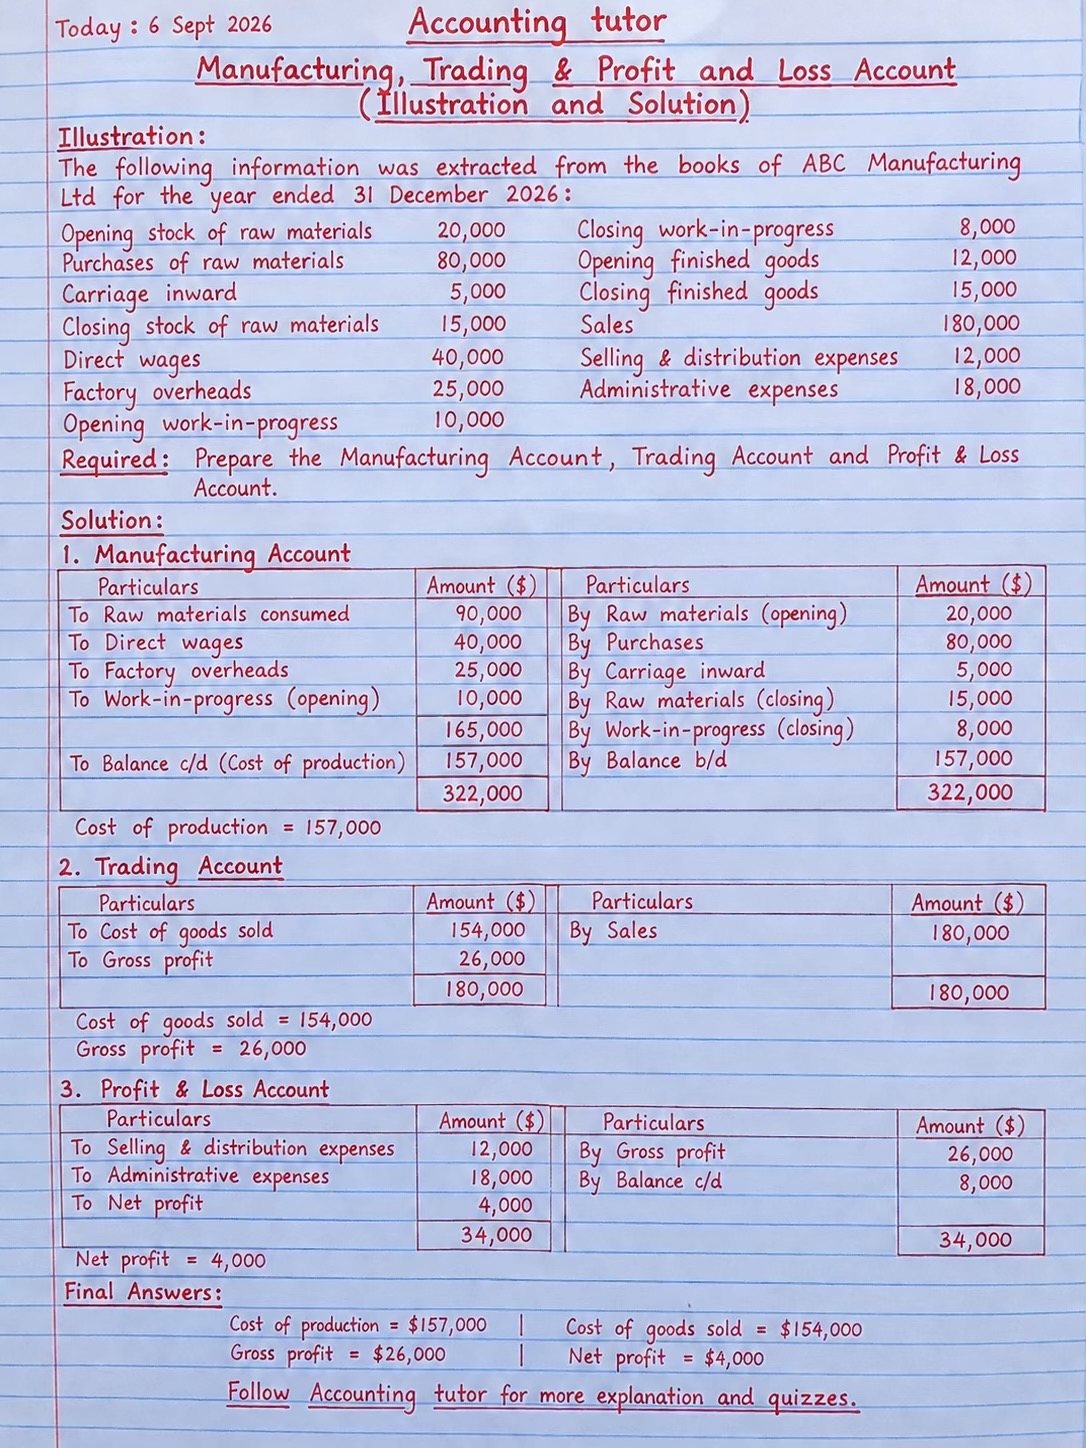 Today : 6 Sept 2026
Accounting tutor
Manufacturing, Trading & Profit and Loss Account
(Illustration and Solution)
Illustration:
The following information was extracted from the books of ABC Manufacturing
Ltd for the year ended 31 December 2026:
Opening stock of raw materials 20,000 Closing work-in-progress 8,000
Purchases of raw materials 80,000 Opening finished goods 12,000
Carriage inward 5,000 Closing finished goods 15,000
Closing stock of raw materials 15,000 Sales 180,000
Direct wages 40,000 Selling & distribution expenses 12,000
Factory overheads 25,000 Administrative expenses 18,000
Opening work-in-progress 10,000
Required: Prepare the Manufacturing Account, Trading Account and Profit & Loss
Account.
Solution:
1. Manufacturing Account
Particulars Amount ($) Particulars Amount ($)
To Raw materials consumed 90,000 By Raw materials (opening) 20,000
To Direct wages 40,000 By Purchases 80,000
To Factory overheads 25,000 By Carriage inward 5,000
To Work-in-progress (opening) 10,000 By Raw materials (closing) 15,000
165,000 By Work-in-progress (closing) 8,000
To Balance c/d (Cost of production) 157,000 By Balance b/d 157,000
322,000 322,000
Cost of production = 157,000
2. Trading Account
Particulars Amount ($) Particulars Amount ($)
To Cost of goods sold 154,000 By Sales 180,000
To Gross profit 26,000
180,000 180,000
Cost of goods sold = 154,000
Gross profit = 26,000
3. Profit & Loss Account
Particulars Amount ($) Particulars Amount ($)
To Selling & distribution expenses 12,000 By Gross profit 26,000
To Administrative expenses 18,000 By Balance c/d 8,000
To Net profit 4,000
34,000 34,000
Net profit = 4,000
Final Answers:
Cost of production = $157,000 | Cost of goods sold = $154,000
Gross profit = $26,000 | Net profit = $4,000
Follow Accounting tutor for more explanation and quizzes.